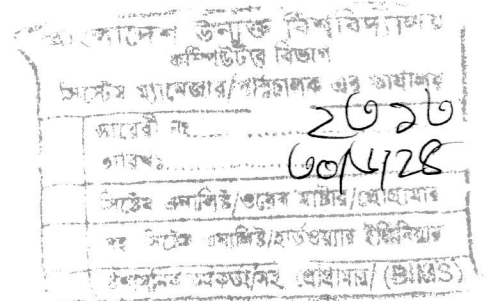 বাংলাদেশ উন্মুক্ত বিশ্ববিদ্যালয়
কম্পিউটার বিভাগ
সিস্টেম ম্যানেজার/পরিচালক এর কার্যালয়
ডায়েরী নং...... ২৩১৩
তারিখঃ......
সিষ্টেম এনালিষ্ট/ওয়েব মাষ্টার/প্রোগ্রামার
সহ সিষ্টেম এনালিষ্ট/হার্ডওয়্যার ইঞ্জিনিয়ার
প্রোগ্রামার/ (BIMS)